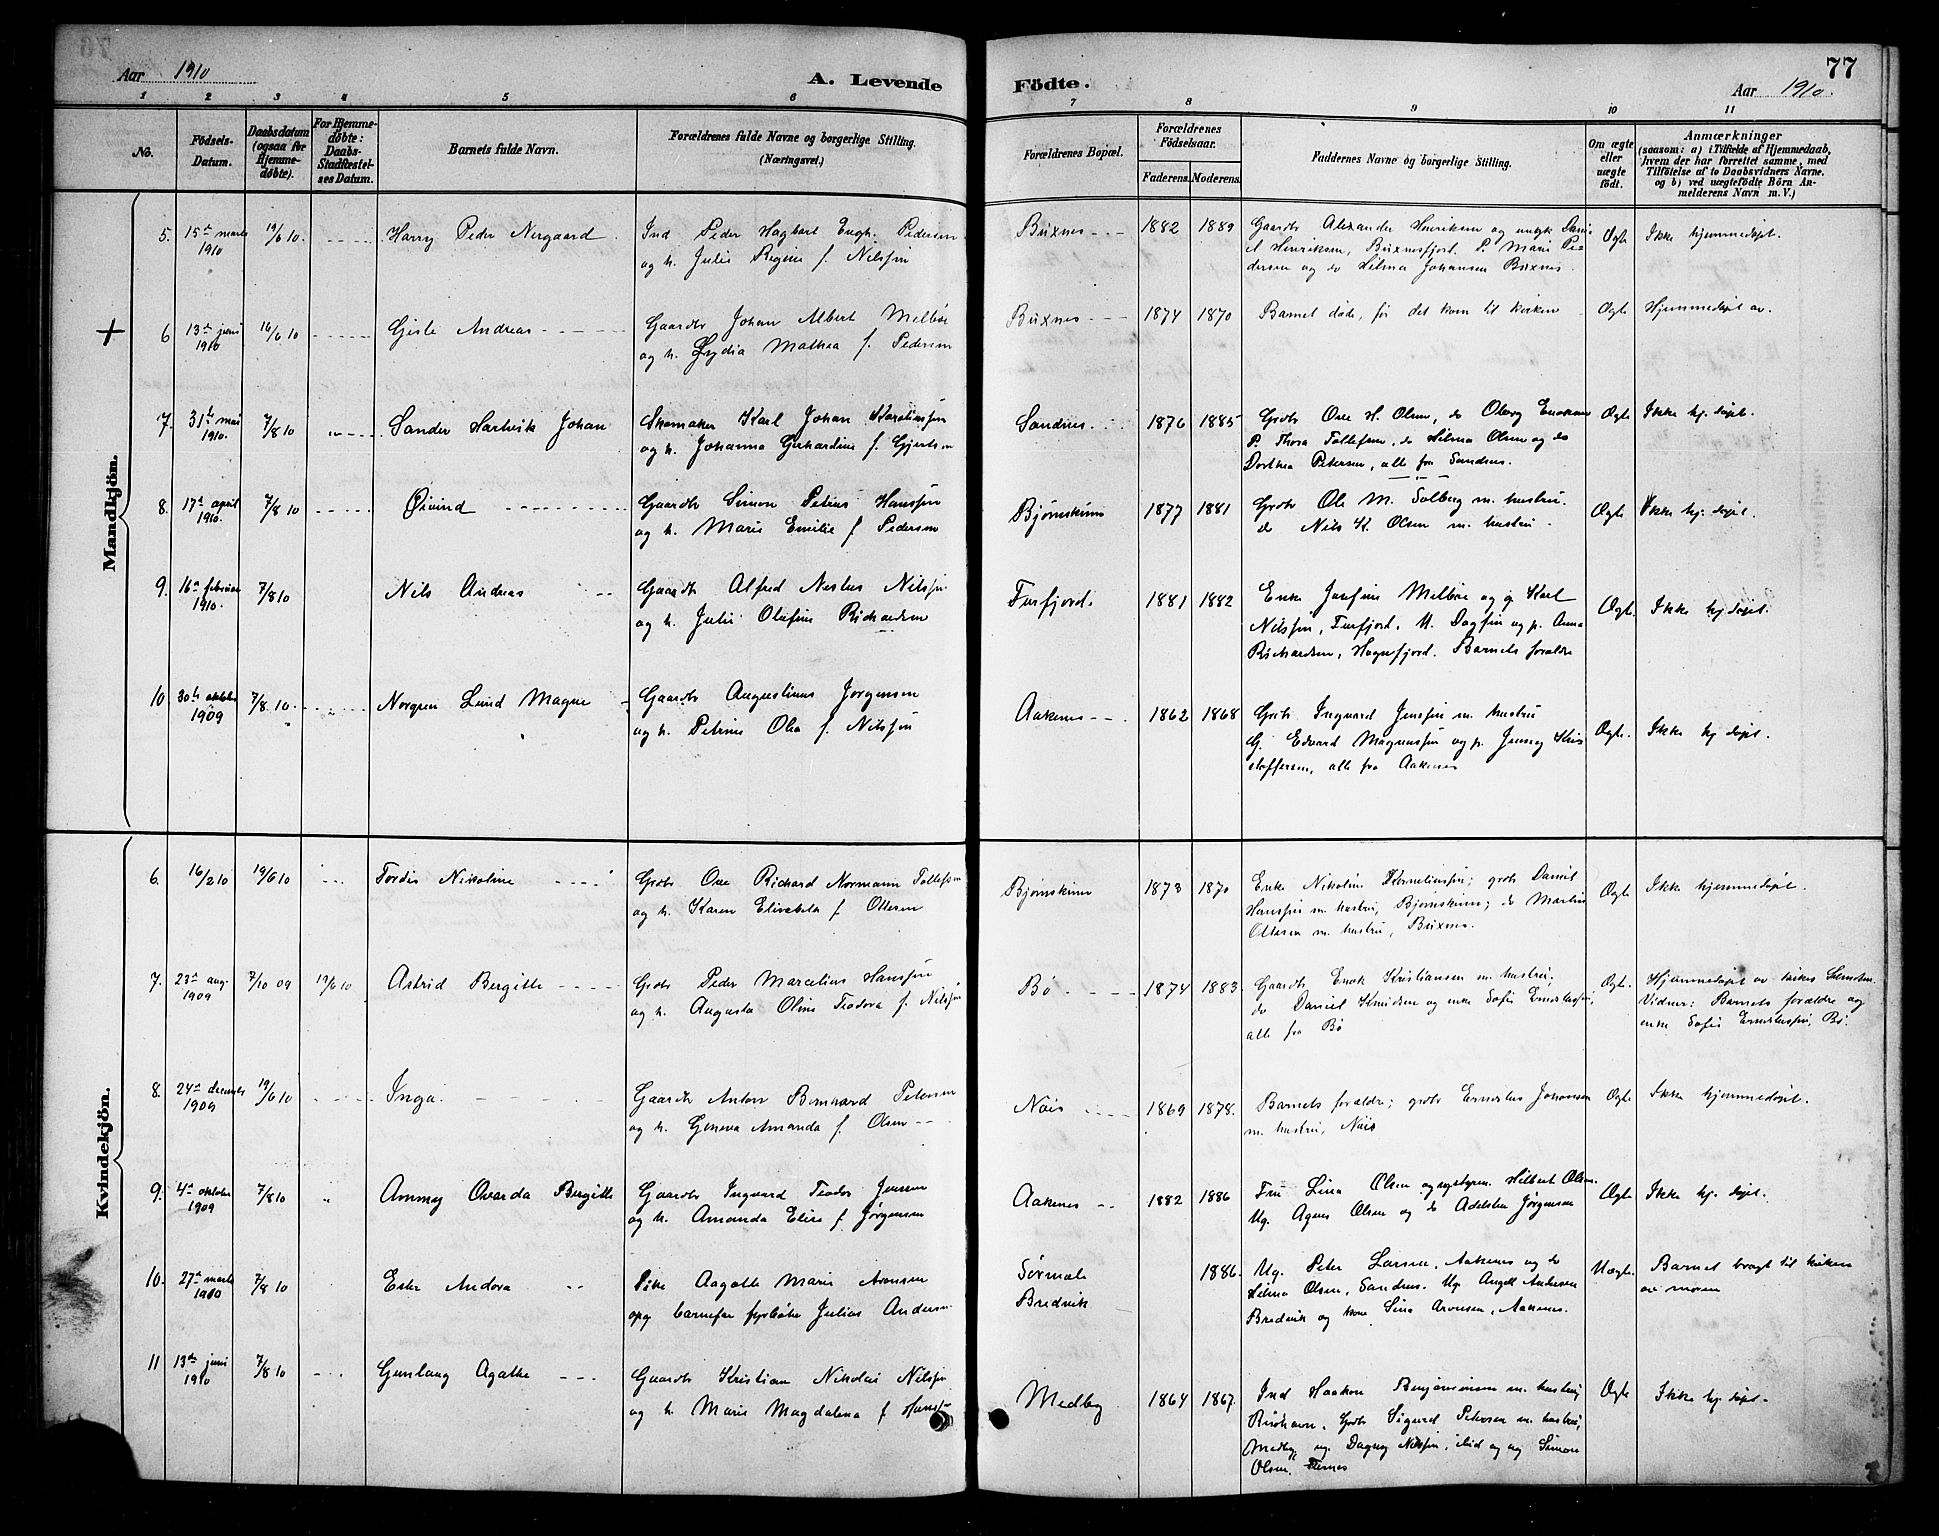 Aar 1910
A. Levende
Födte.
77
Aar 1910.
1 2 3 4 5 6 7 8 9 10 11
No.
Födsels-
Datum.
Daabsdatum
(ogsaa for
Hjemme-
døbte).
For Hjemme-
døbte:
Daabs-
Stadfæstel-
ses Datum.
Barnets fulde Navn.
Forældrenes fulde Navne og borgerlige Stilling.
(Næringsvei.)
Forældrenes Bopæl.
Forældrenes
Födselsaar.
Faderens. Moderens.
Faddernes Navne og borgerlige Stilling.
Om ægte
eller
uægte
födt.
Anmærkninger
(saasom: a) i Tilfælde af Hjemmedaab,
hvem der har forrettet samme, med
Tilföielse af to Daabsvidners Navne.
og b) ved uægtefödte Börn An-
melderens Navn m. V.)
Mandkjön.
5. 15de marts 1910 19/6 10 Harry Peder Norgaard
Ind Peder Hagbart Engh. Pedersen
og h. Julie Regine f. Nilssen
Buxnes 1882 1889
Gaardbr Alexander Henriksen og ungk Dani-
el Henriksen, Buxnesfjord. P. Marie Pe-
dersen og do Hilma Johansen Buxnes.
Ægte Ikke hjemmedøpt.
+ 6 13de juni 1910 16/6 10 Gisle Andreas
Gaardbr Johan Albert Melbøe
og h. Lydia Mathea f. Pedersen
Buxnes 1874 1870
Barnet døde, før det kom til kirken
Ægte Hjemmedøpt av.
7. 31te mai 1910. 7/8 10 Sander Hartvik Johan
Skomaker Karl Johan Karolinssen
og h. Johanna Gerhardine f. Gjertsen
Sandnes 1876 1885
Grdbr Ole H. Olsen, do Oberg Enoksen
P. Thora Tollefsen, do Hilma Olsen og do
Dorthea Petersen, alle fra Sandnes.
Ægte Ikke hj. døpt.
8. 17de april 1910. 7/8 10 Øivind
Gaardbr Simon Petrus Hanssen
og h. Marie Emilie f Pedersen
Bjørnskinn 1877 1881
Grdbr Ole M. Solberg m. hustru.
do Nils K. Olsen m. hustru.
Ægte Ikke hj. døpt.
9. 16de februar 1910. 7/8 10 Nils Andreas
Gaardbr Alfred Nestus Nilssen
og h. Julie Olufine Richardsen
Furfjord. 1881 1882
Enke Josfine Melbøe og g Karl
Nilssen, Furfjord. U. Dagfin og p. Anna
Richardsen, Hognfjord. Barnets forældre
Ægte. Ikke hj døpt.
10 30te oktober 1909 7/8 10. Norgren Lund Magne
Gaardbr Augustinus Jørgensen
og h. Petrine Olea f. Nilssen
Aakenes 1862 1868
Grdbr. Ingvard Jenssen m. hustru
G. Edvard Magnussen og p. Jenny Kris
stoffersen, alle fra Aakenes
Ægte. Ikke hj døpt.
Kvindekjön.
6. 16/2 10 19/6 10 Tordis Nikoline
Grdbr Ole Richard Normann Tollefsen
og h. Karen Elisabeta f Ottesen
Bjørnskinn 1873 1870
Enke Nikoline Korneliussen; grdbr Daniel
Hanssen m. hustru, Bjørnskinn; do Martin
Ottesen m. hustru, Buxnes.
Ægte Ikke hjemmedøpt.
7. 23de aug. 1909 7/10 09 19/6 10 Astrid Bergitte
Grdbr Peder Marcelius Hanssen
og h. Augusta Oline Teodora f. Nilssen
Bø 1874 1883.
Gaardbr Enok Kristiansen m. hustru;
do Daniel Knudsen og enke Sofie Ernestussen,
alle fra Bø
Ægte. Hjemmedøpt av
Vidner: Barnets forældre og
enke Sofie Ernestussen, Bø.
8. 24de decemb 1909 19/6 10 Inga
Gaardbr Anton Bernhard Petersen
og h. Geneva Amanda f. Olsen
Nøis 1869 1878.
Barnets forældre; grdbr Ernestus Johansen
m. hustru, Nøis
Ægte Ikke hjemmedøpt.
9. 4de oktober 1909 7/8 10 Ammy Ovarda Bergitte
Gaardbr Ingvard Teodor Jensen
og h. Amanda Elise f. Jørgensen
Aakenes 1882 1886
Fru Lina Olsen Hilbert Olsen
Ug. Agnes Olsen og do Adelsten Jørgensen
Ægte Ikke hj. døpt.
10. 27de marts 1910 7/8 10 Ester Andora
Pike Aagatte Marie Aronsen
opg barnefar fyrbøter Julius Andersen
Sørmæle
Bredvik
1886.
Ug. Peter Larsen, Aakenes og do
Hilma Olsen, Sandnes. Ug. Angell Andersen
Bredvik og kone Lina Aronsen, Aakenes.
Uægte. Barnet bragt til kirken
av moren
11 13de juni 1910 7/8 10 Gunlaug Agathe
Gaardbr Kristian Nikolai Nilssen
og h. Marie Magdalena f Hanssen
Medby 1864 1867.
Ind Haakon Benjaminsen m. hustru,
Risøhavn. Grdbr Sigurd Petersen m. hustru,
Medby, ug. Dagny Nilssen, ibid og ug Simon
Olsen, Ternes
Ægte Ikke hj. døpt.